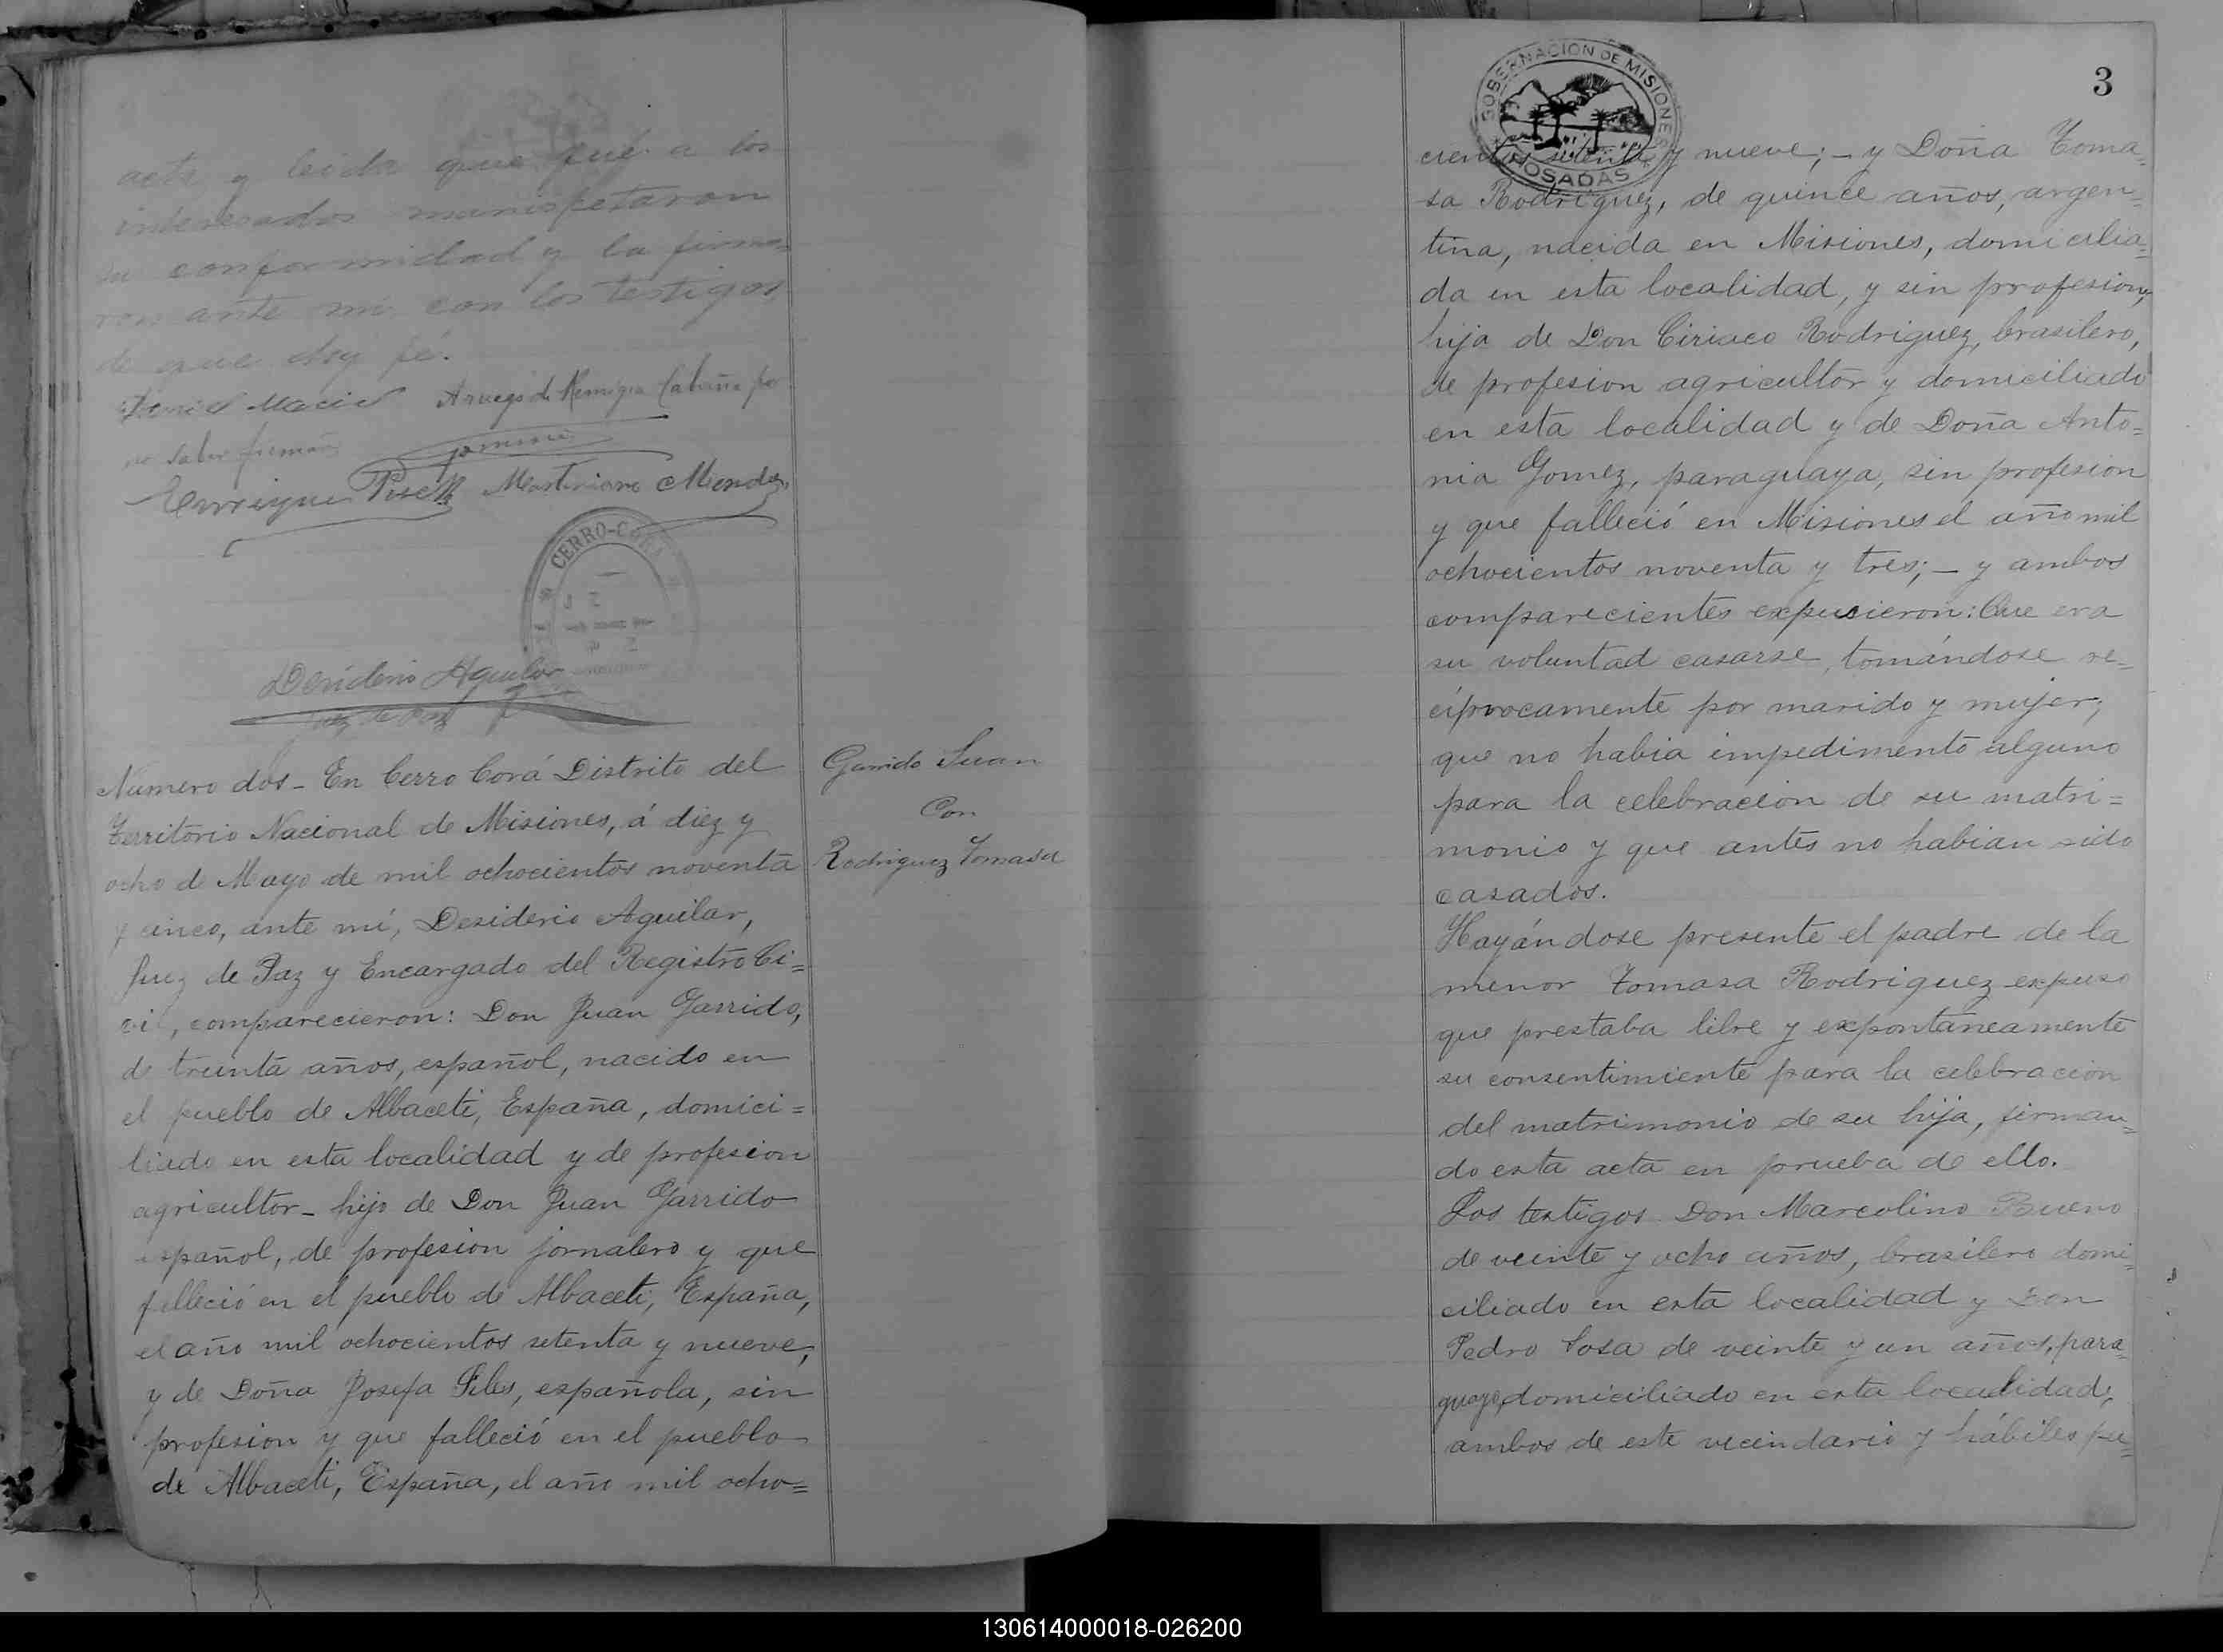 acta y leida que fué a los
interesados manispetaron
su conformidad y la firma=
ron ante mi con los testigos
de que doy fé.
Daniel Maciel Aruego de Remigia Cabaña por
no saber firmar
Enrique Martiniano Mendez
CERRO-CORÁ
Desiderio Aguilar
Juez de Paz
Numero dos - En Cerro Corá Distrito del
Territorio Nacional de Misiones, á diez y
ocho de Mayo de mil ochocientos noventa
y cinco, ante mí, Desiderio Aguilar,
Juez de Paz y Encargado del Registro Ci=
vil, comparecieron: Don Juan Garrido,
de treinta años, español, nacido en
el pueblo de Albaceti, España, domici=
liado en esta localidad y de profesion
agricultor - hijo de Don Juan Garrido
español, de profesion jornalero y que
felleció en el pueblo de Albaceti, España,
el año mil ochocientos setenta y nueve,
y de Doña Josefa Piles, española, sin
profesion y que falleció en el pueblo
de Albaceti, España, el año mil ocho=
Garrido Juan
Con
Rodriguez Tomasa
GOBERNACION DE MISIONES
POSADAS
3
cientos setenta y nueve; - y Doña Toma=
sa Rodriguez, de quince años, argen=
tina, nacida en Misiones, domicilia=
da en esta localidad, y sin profesion,
hija de Don Ciriaco Rodriguez, brasilero,
de profesion agricultor y domiciliado
en esta localidad y de Doña Anto=
nia Gomez, paraguaya, sin profesion
y que falleció en Misiones el año mil
ochocientos noventa y tres; - y ambos
comparecientes expusieron: Que era
su voluntad casarse, tomándose re=
cíprocamente por marido y mujer;
que no habia impedimento alguno
para la celebracion de su matri=
monio y que antes no habian sido
casados.
Hayándose presente el padre de la
menor Tomasa Rodriguez expuso
que prestaba libre y expontaneamente
su consentimiente para la celebracion
del matrimonio de su hija, firman=
do esta acta en prueba de ello.
Los testigos Don Marcolino Bueno
de veinte y ocho años, brasilero domi=
ciliado en esta localidad y Don
Pedro Sosa de veinte y un años, para=
guayo, domiciliado en esta localidad;
ambos de este vecindario y hábiles pu=
130614000018-026200